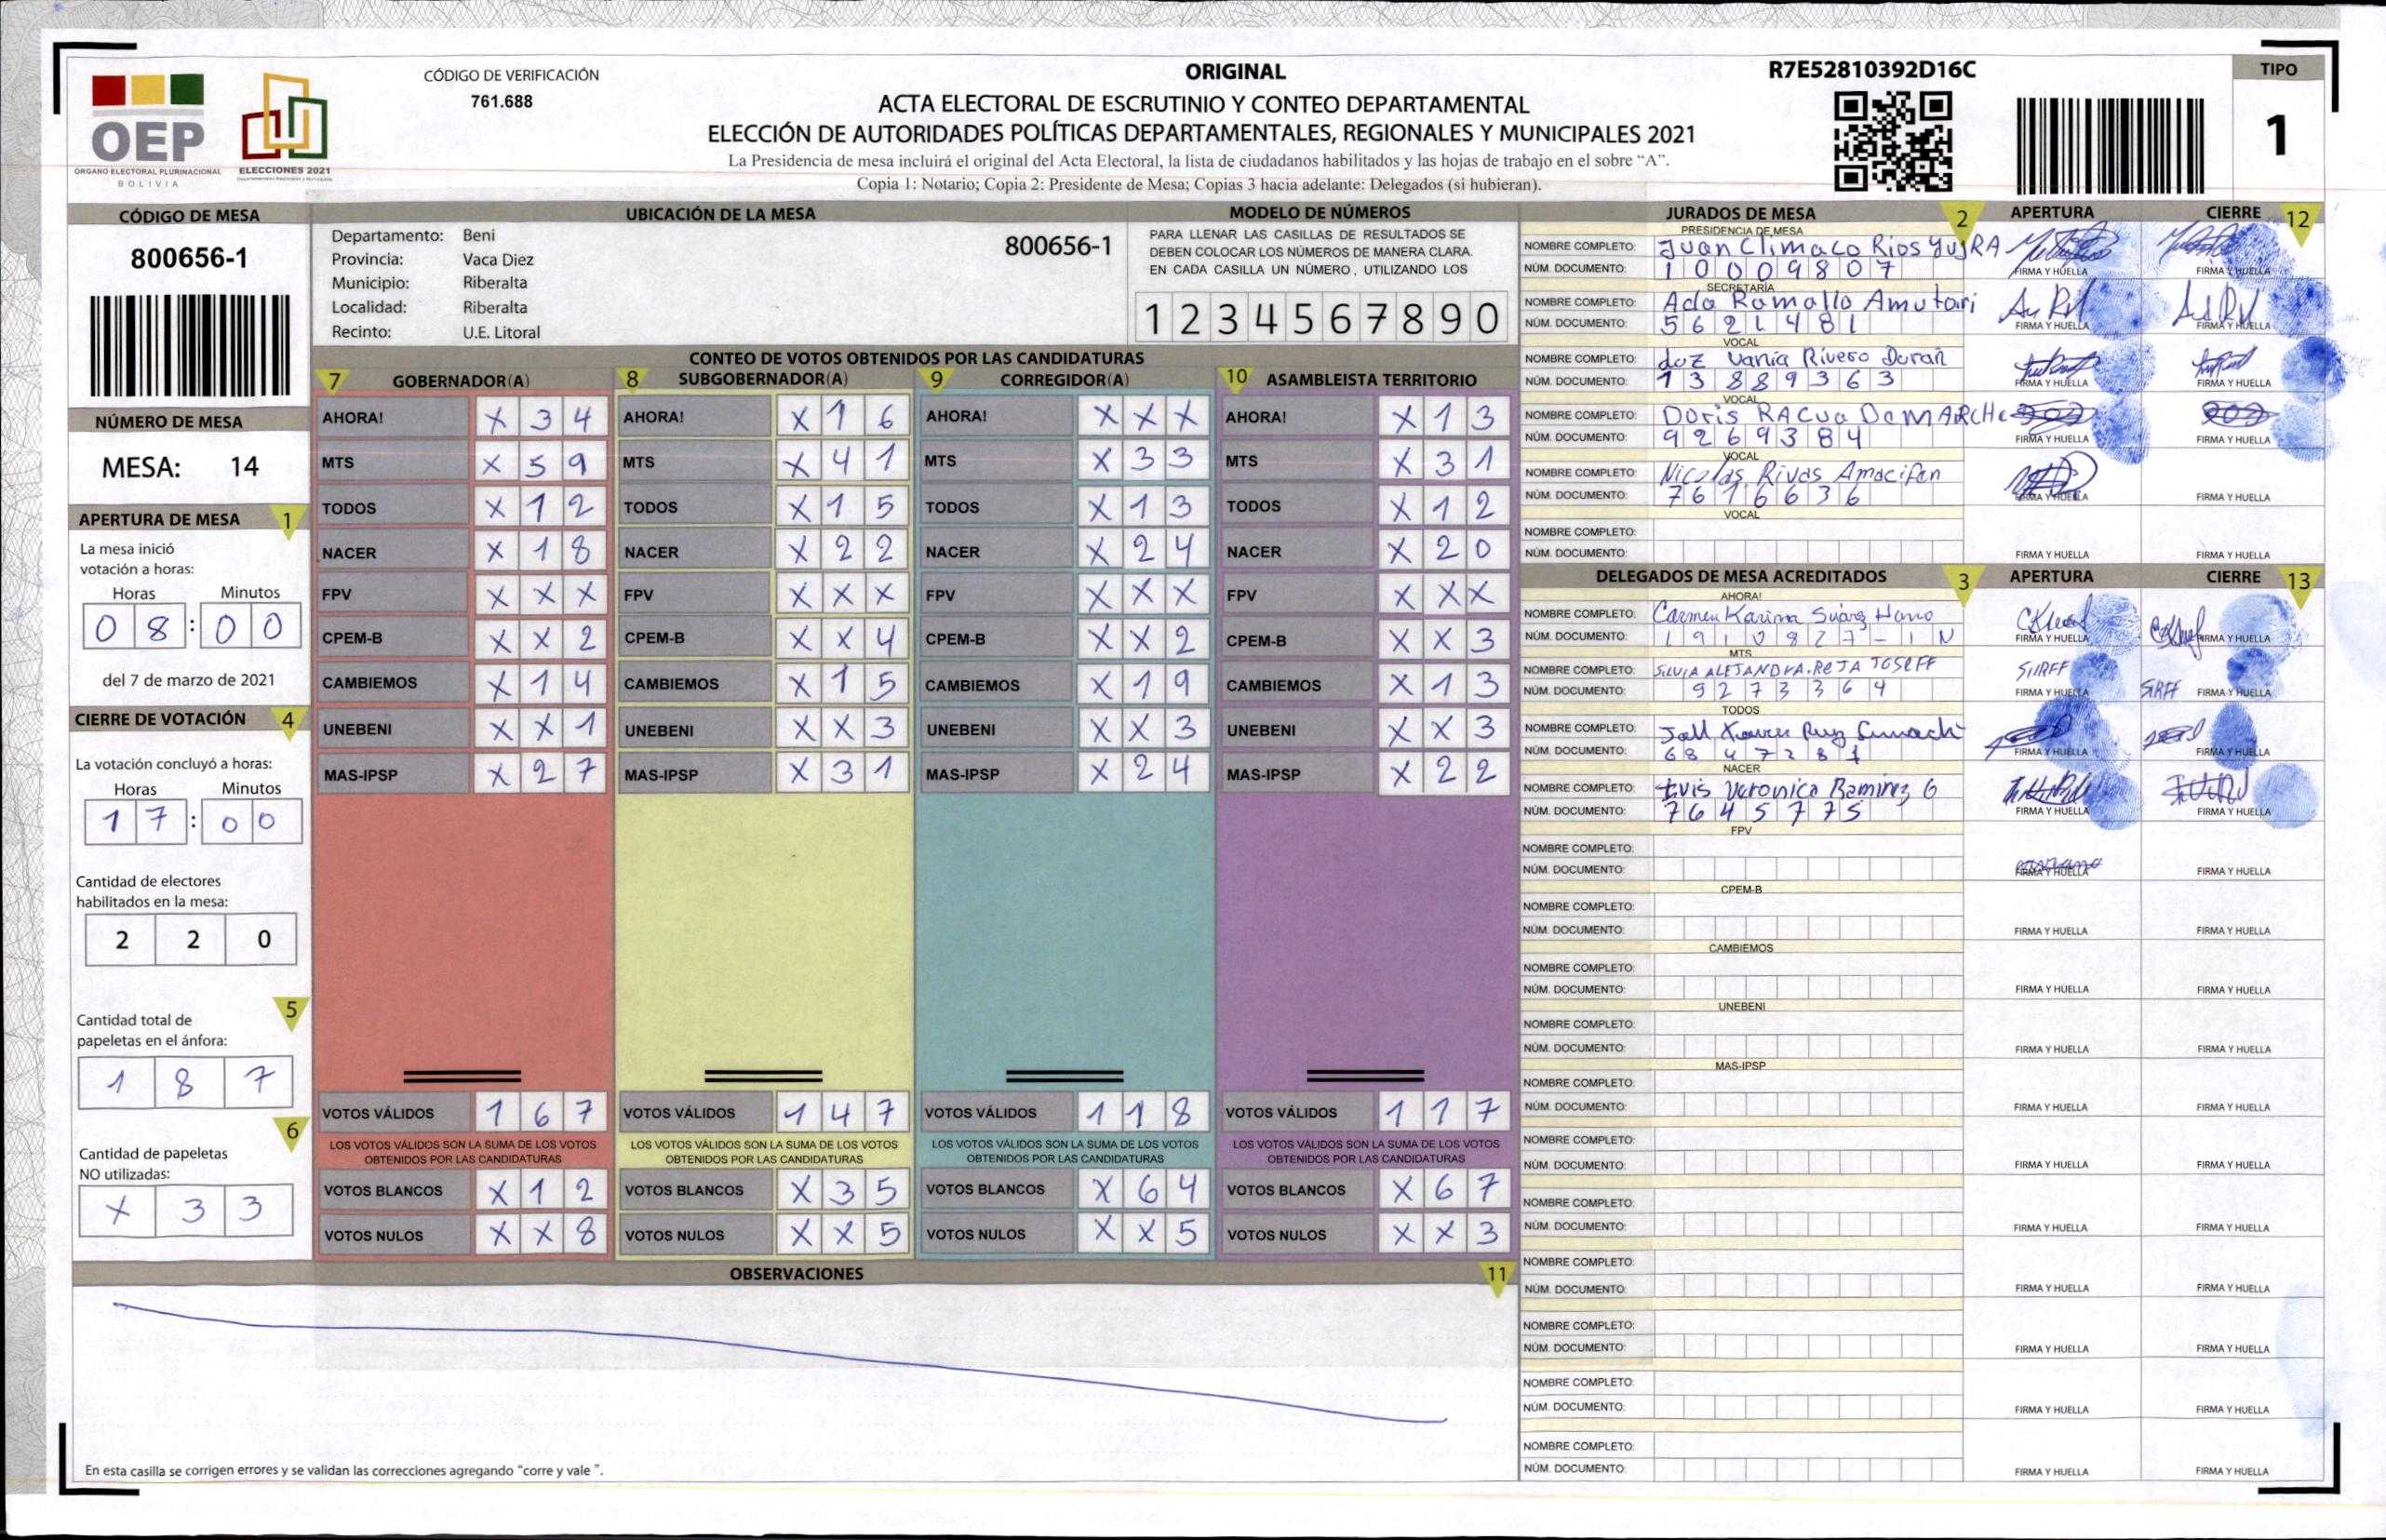 OEP
ÓRGANO ELECTORAL PLURINACIONAL
BOLIVIA
ELECCIONES 2021
CÓDIGO DE VERIFICACIÓN
761.688
ORIGINAL
ACTA ELECTORAL DE ESCRUTINIO Y CONTEO DEPARTAMENTAL
ELECCIÓN DE AUTORIDADES POLÍTICAS DEPARTAMENTALES, REGIONALES Y MUNICIPALES 2021
La Presidencia de mesa incluirá el original del Acta Electoral, la lista de ciudadanos habilitados y las hojas de trabajo en el sobre “A”.
Copia 1: Notario; Copia 2: Presidente de Mesa; Copias 3 hacia adelante: Delegados (si hubieran).
R7E52810392D16C
TIPO
1
CÓDIGO DE MESA
800656-1
NÚMERO DE MESA
MESA: 14
APERTURA DE MESA 1
La mesa inició
votación a horas:
Horas Minutos
0 8 : 0 0
del 7 de marzo de 2021
CIERRE DE VOTACIÓN 4
La votación concluyó a horas:
Horas Minutos
1 7 : 0 0
Cantidad de electores
habilitados en la mesa:
2 2 0
5
Cantidad total de
papeletas en el ánfora:
1 8 7
6
Cantidad de papeletas
NO utilizadas:
X 3 3
UBICACIÓN DE LA MESA
Departamento: Beni
Provincia: Vaca Diez
Municipio: Riberalta
Localidad: Riberalta
Recinto: U.E. Litoral
800656-1
MODELO DE NÚMEROS
PARA LLENAR LAS CASILLAS DE RESULTADOS SE
DEBEN COLOCAR LOS NÚMEROS DE MANERA CLARA.
EN CADA CASILLA UN NÚMERO, UTILIZANDO LOS
1 2 3 4 5 6 7 8 9 0
CONTEO DE VOTOS OBTENIDOS POR LAS CANDIDATURAS
7 GOBERNADOR(A) 8 SUBGOBERNADOR(A) 9 CORREGIDOR(A) 10 ASAMBLEISTA TERRITORIO
AHORA! X 3 4 AHORA! X 1 6 AHORA! X X X AHORA! X 1 3
MTS X 5 9 MTS X 4 1 MTS X 3 3 MTS X 3 1
TODOS X 1 2 TODOS X 1 5 TODOS X 1 3 TODOS X 1 2
NACER X 1 8 NACER X 2 2 NACER X 2 4 NACER X 2 0
FPV X X X FPV X X X FPV X X X FPV X X X
CPEM-B X X 2 CPEM-B X X 4 CPEM-B X X 2 CPEM-B X X 3
CAMBIEMOS X 1 4 CAMBIEMOS X 1 5 CAMBIEMOS X 1 9 CAMBIEMOS X 1 3
UNEBENI X X 1 UNEBENI X X 3 UNEBENI X X 3 UNEBENI X X 3
MAS-IPSP X 2 7 MAS-IPSP X 3 1 MAS-IPSP X 2 4 MAS-IPSP X 2 2
VOTOS VÁLIDOS 1 6 7 VOTOS VÁLIDOS 1 4 7 VOTOS VÁLIDOS 1 1 8 VOTOS VÁLIDOS 1 1 7
LOS VOTOS VÁLIDOS SON LA SUMA DE LOS VOTOS LOS VOTOS VÁLIDOS SON LA SUMA DE LOS VOTOS LOS VOTOS VÁLIDOS SON LA SUMA DE LOS VOTOS LOS VOTOS VÁLIDOS SON LA SUMA DE LOS VOTOS
OBTENIDOS POR LAS CANDIDATURAS OBTENIDOS POR LAS CANDIDATURAS OBTENIDOS POR LAS CANDIDATURAS OBTENIDOS POR LAS CANDIDATURAS
VOTOS BLANCOS X 1 2 VOTOS BLANCOS X 3 5 VOTOS BLANCOS X 6 4 VOTOS BLANCOS X 6 7
VOTOS NULOS X X 8 VOTOS NULOS X X 5 VOTOS NULOS X X 5 VOTOS NULOS X X 3
OBSERVACIONES 11
En esta casilla se corrigen errores y se validan las correcciones agregando "corre y vale ".
JURADOS DE MESA 2 APERTURA CIERRE 12
PRESIDENCIA DE MESA
NOMBRE COMPLETO: Juan Climaco Rios YujRA
NÚM. DOCUMENTO: 1 0 0 0 9 8 0 7 FIRMA Y HUELLA FIRMA Y HUELLA
SECRETARÍA
NOMBRE COMPLETO: Ada Ramallo Amutari
NÚM. DOCUMENTO: 5 6 2 1 4 8 1 FIRMA Y HUELLA FIRMA Y HUELLA
VOCAL
NOMBRE COMPLETO: Luz Vania Rivero Durañ
NÚM. DOCUMENTO: 1 3 8 8 9 3 6 3 FIRMA Y HUELLA FIRMA Y HUELLA
VOCAL
NOMBRE COMPLETO: Doris RACua DeMARCHe
NÚM. DOCUMENTO: 9 2 6 9 3 8 4 FIRMA Y HUELLA FIRMA Y HUELLA
VOCAL
NOMBRE COMPLETO: Nicolas Rivas Amacifen
NÚM. DOCUMENTO: 7 6 1 6 6 3 6 FIRMA Y HUELLA FIRMA Y HUELLA
VOCAL
NOMBRE COMPLETO:
NÚM. DOCUMENTO: FIRMA Y HUELLA FIRMA Y HUELLA
DELEGADOS DE MESA ACREDITADOS 3 APERTURA CIERRE 13
AHORA!
NOMBRE COMPLETO: Carmen Karina Suárez
NÚM. DOCUMENTO: 1 9 1 0 8 2 7 - 1 N FIRMA Y HUELLA FIRMA Y HUELLA
MTS
NOMBRE COMPLETO: SILVIA ALEJANDRA.ReJA JOSEFF
NÚM. DOCUMENTO: 9 2 7 3 3 6 4 FIRMA Y HUELLA FIRMA Y HUELLA
TODOS
NOMBRE COMPLETO: Ruy
NÚM. DOCUMENTO: 6 8 4 7 2 8 1 FIRMA Y HUELLA FIRMA Y HUELLA
NACER
NOMBRE COMPLETO: Veronica Ramirez G
NÚM. DOCUMENTO: 7 6 4 5 7 7 5 FIRMA Y HUELLA FIRMA Y HUELLA
FPV
NOMBRE COMPLETO:
NÚM. DOCUMENTO: FIRMA Y HUELLA FIRMA Y HUELLA
CPEM-B
NOMBRE COMPLETO:
NÚM. DOCUMENTO: FIRMA Y HUELLA FIRMA Y HUELLA
CAMBIEMOS
NOMBRE COMPLETO:
NÚM. DOCUMENTO: FIRMA Y HUELLA FIRMA Y HUELLA
UNEBENI
NOMBRE COMPLETO:
NÚM. DOCUMENTO: FIRMA Y HUELLA FIRMA Y HUELLA
MAS-IPSP
NOMBRE COMPLETO:
NÚM. DOCUMENTO: FIRMA Y HUELLA FIRMA Y HUELLA
NOMBRE COMPLETO:
NÚM. DOCUMENTO: FIRMA Y HUELLA FIRMA Y HUELLA
NOMBRE COMPLETO:
NÚM. DOCUMENTO: FIRMA Y HUELLA FIRMA Y HUELLA
NOMBRE COMPLETO:
NÚM. DOCUMENTO: FIRMA Y HUELLA FIRMA Y HUELLA
NOMBRE COMPLETO:
NÚM. DOCUMENTO: FIRMA Y HUELLA FIRMA Y HUELLA
NOMBRE COMPLETO:
NÚM. DOCUMENTO: FIRMA Y HUELLA FIRMA Y HUELLA
NOMBRE COMPLETO:
NÚM. DOCUMENTO: FIRMA Y HUELLA FIRMA Y HUELLA